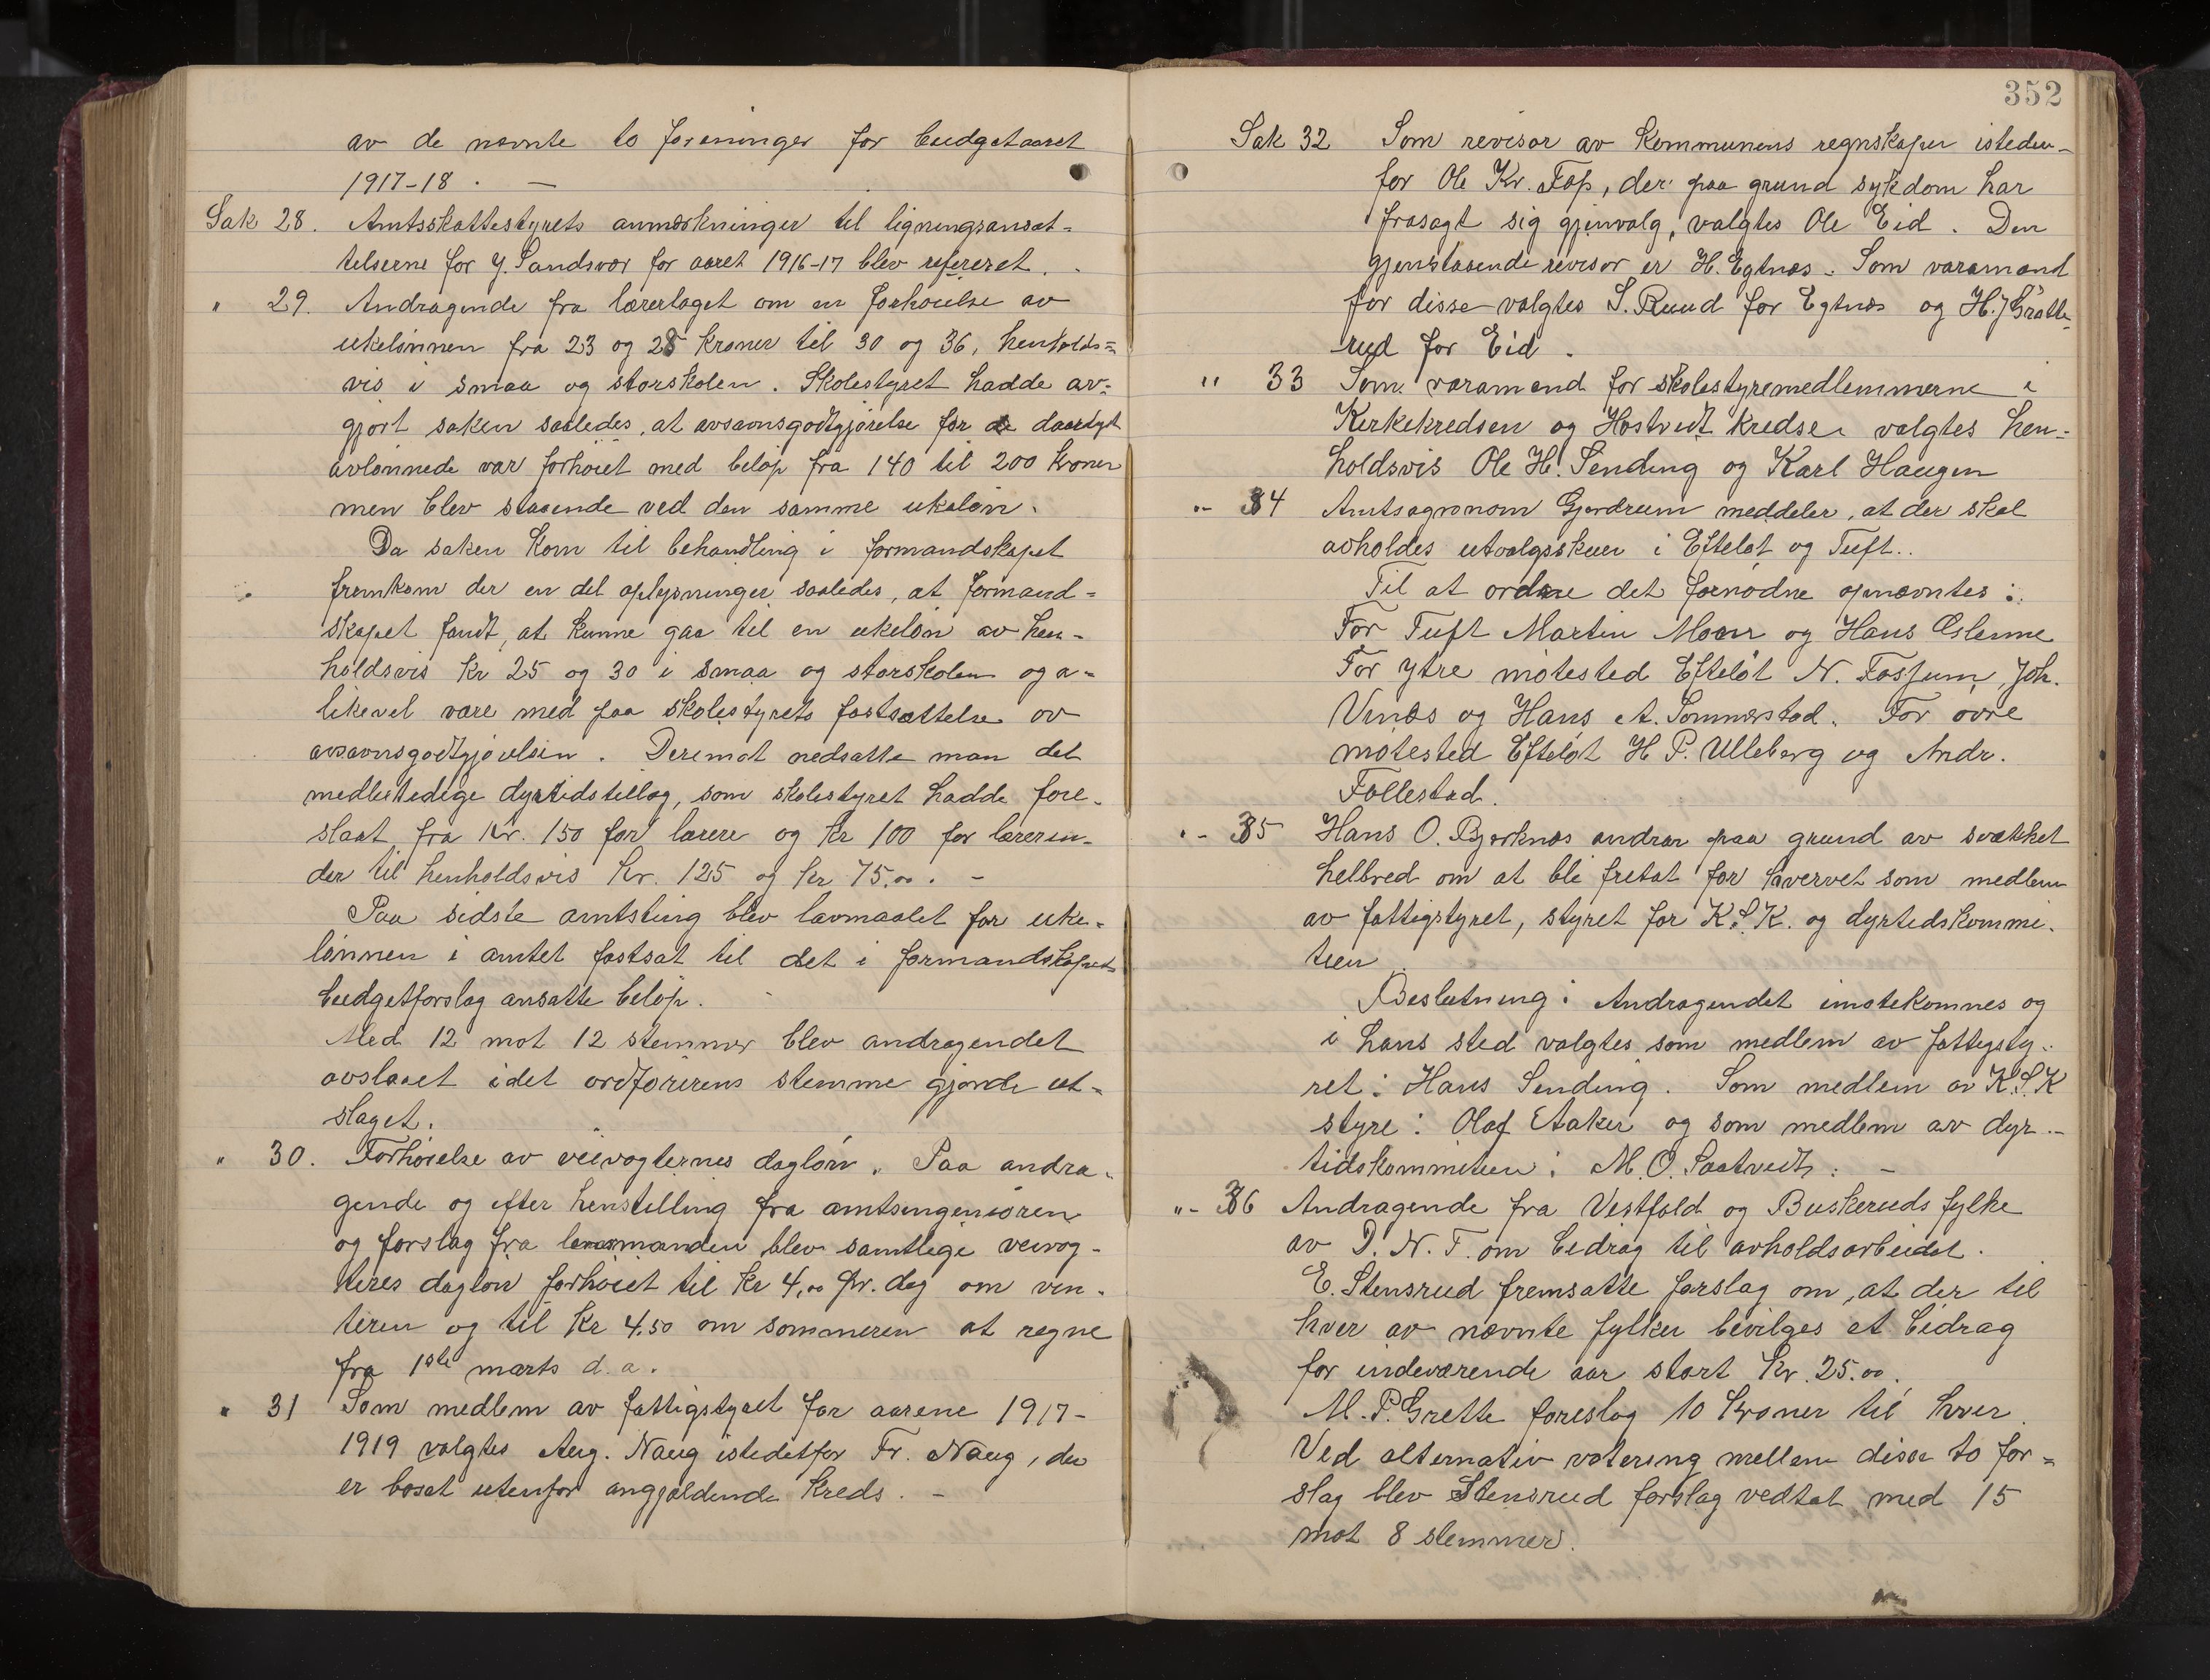 av de nævnte to foreninger for budgetaaret
1917-18. —
Sak 28. Amtsskattestyrets anmerkninger til ligningsansæt-
telserne for Y. Sandsvær for aaret 1916-17 blev refereret.
" 29. Andragende fra lærerlaget om en forhøielse av
ukelønnen fra 23 og 28 kroner til 30 og 36, henholds=
vis i smaa og storskolen. Skolestyret hadde av-
gjort saken saaledes, at avsavnsgodtgjørelse for de daarligst
avlønnede var forhøiet med beløp fra 140 til 200 kroner
men blev staaende ved den samme ukeløn.
Da saken kom til behandling i formandskapet
fremkom der en del oplysninger saaledes, at formand=
skapet fandt, at kunne gaa til en ukeløn av hen-
holdsvis kr 25 og 30 i smaa og storskolen og a-
likevel være med paa skolestyrets fastsættelse av
avsavnsgodtgjørelsen. Derimot nedsatte man det
medlertedige dyrtidstillæg, som skolestyret hadde fore-
slaat fra kr. 150 for lærere og kr 100 for lærerin-
der til henholdsvis kr. 125 og kr 75.00. -
Paa sidste amtsting blev lavmaalet for uke-
lønnen i amtet fastsat til det i formandskapets
budgetforslag ansatte beløp.
Med 12 mot 12 stemmer blev andragendet
avslaaet idet ordførerens stemme gjorde ut-
slaget.
" 30. Forhøielse av veivogternes dagløn. Paa andra-
gende og efter henstilling fra amtsingeniøren
og forslag fra lensmanden blev samtlige veivog-
teres dagløn forhøiet til kr 4,00 pr. dag om vin-
teren og til kr 4.50 om sommeren at regne
fra 1ste marts d.a.
" 31 Som medlem av fattigstyret for aarene 1917-
1919 valgtes Aug. Naug istedetfor Fr. Naug, der
er bosat utenfor angjældende kreds. -
352
Sak 32 Som revisor av kommunens regnskaper isteden-
for Ole Kr. Fop, der paa grund sykdom har
frasagt sig gjenvalg, valgtes Ole Eid. Den
gjenstaaende revisor er H. Egtnæs. Som varamænd
for disse valgtes S. Ruud for Egtnæs og H. J Grätte-
rud for Eid.
" 33 Som varamænd for skolestyremedlemmerne i
Kirkekredsen og Hostvedt kredser valgtes hen-
holdsvis Ole H. Sending og Karl Haugen
"- 34 Amtsagronom Gjerdrum meddeler, at der skal
avholdes utvalgsskuer i Efteløt og Tuft..
Til at ordne det fornødne opnævntes:
For Tuft Martin Moen og Hans Øslenne
For Ytre møtested Efteløt N. Fossum, Joh.
Vinæs og Hans A. Sommerstad. For øvre
møtested Efteløt H P. Ulleberg og Andr.
Follestad.
"- 35 Hans O. Bjerknæs andrar paa grund av svækket
helbred om at bli fritat for hvervet som medlem
av fattigstyret, styret for K.S.K. og dyrtidskommi-
teen
Beslutning: Andragendet imøtekommes og
i hans sted valgtes som medlem av fattigsty-
ret: Hans Sending. Som medlem av K.S.K
styre: Olaf Aaker og som medlem av dyr-
tidskommiteen: M. O. Saatvedt. -
"- 36 Andragende fra Vestfold og Buskeruds fylke
av D. N. T. om bidrag til avholdsarbeidet.
E. Stensrud fremsatte forslag om, at der til
hver av nævnte fylker bevilges et bidrag
for indeværende aar stort kr. 25.00.
M. P. Grette foreslog 10 kroner til hver.
Ved alternativ votering mellem disse to for=
slag blev Stensrud forslag vedtat med 15
mot 8 stemmer.